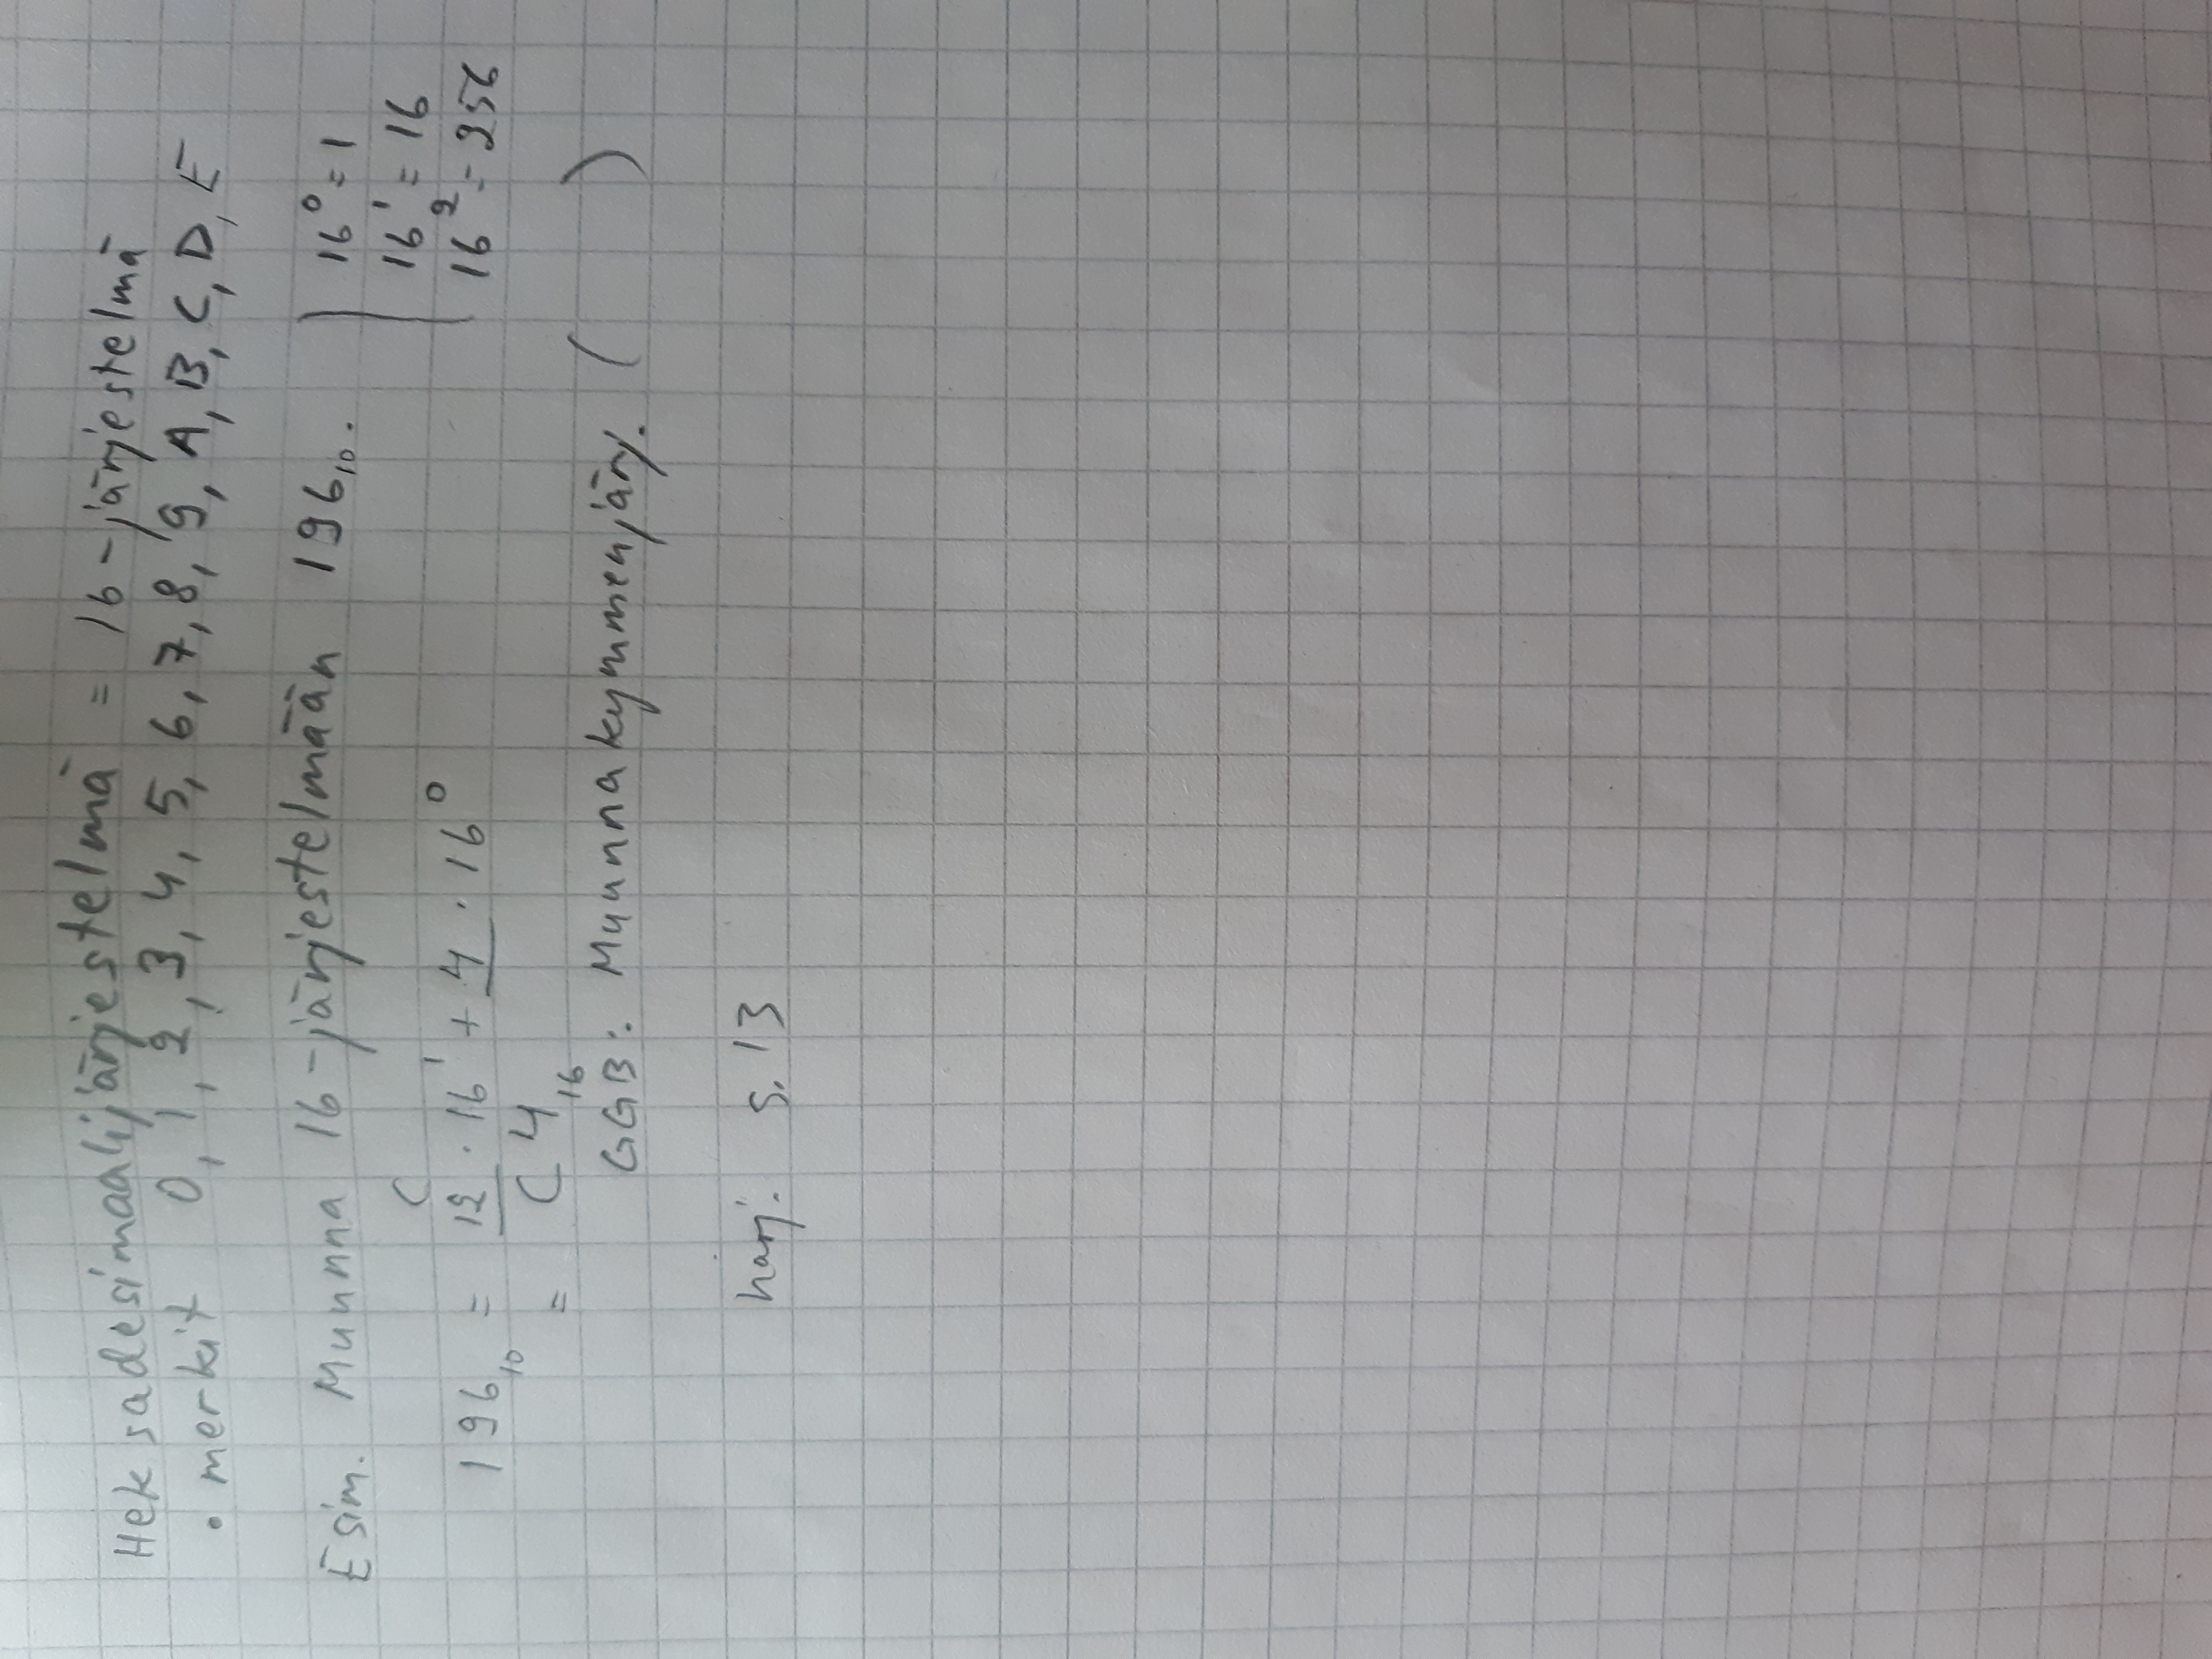 Heksadesimaalijärjestelmä = 16-järjestelmä
• merkit 0, 1, 2, 3, 4, 5, 6, 7, 8, 9, A, B, C, D, E
Esim. Muunna 16-järjestelmään 196₁₀.
16⁰ = 1
16¹ = 16
16² = 256
C
196₁₀ = 12 · 16¹ + 4 · 16⁰
= C4₁₆
GGB: Muunna kymmenjärj. ( )
harj. s. 13